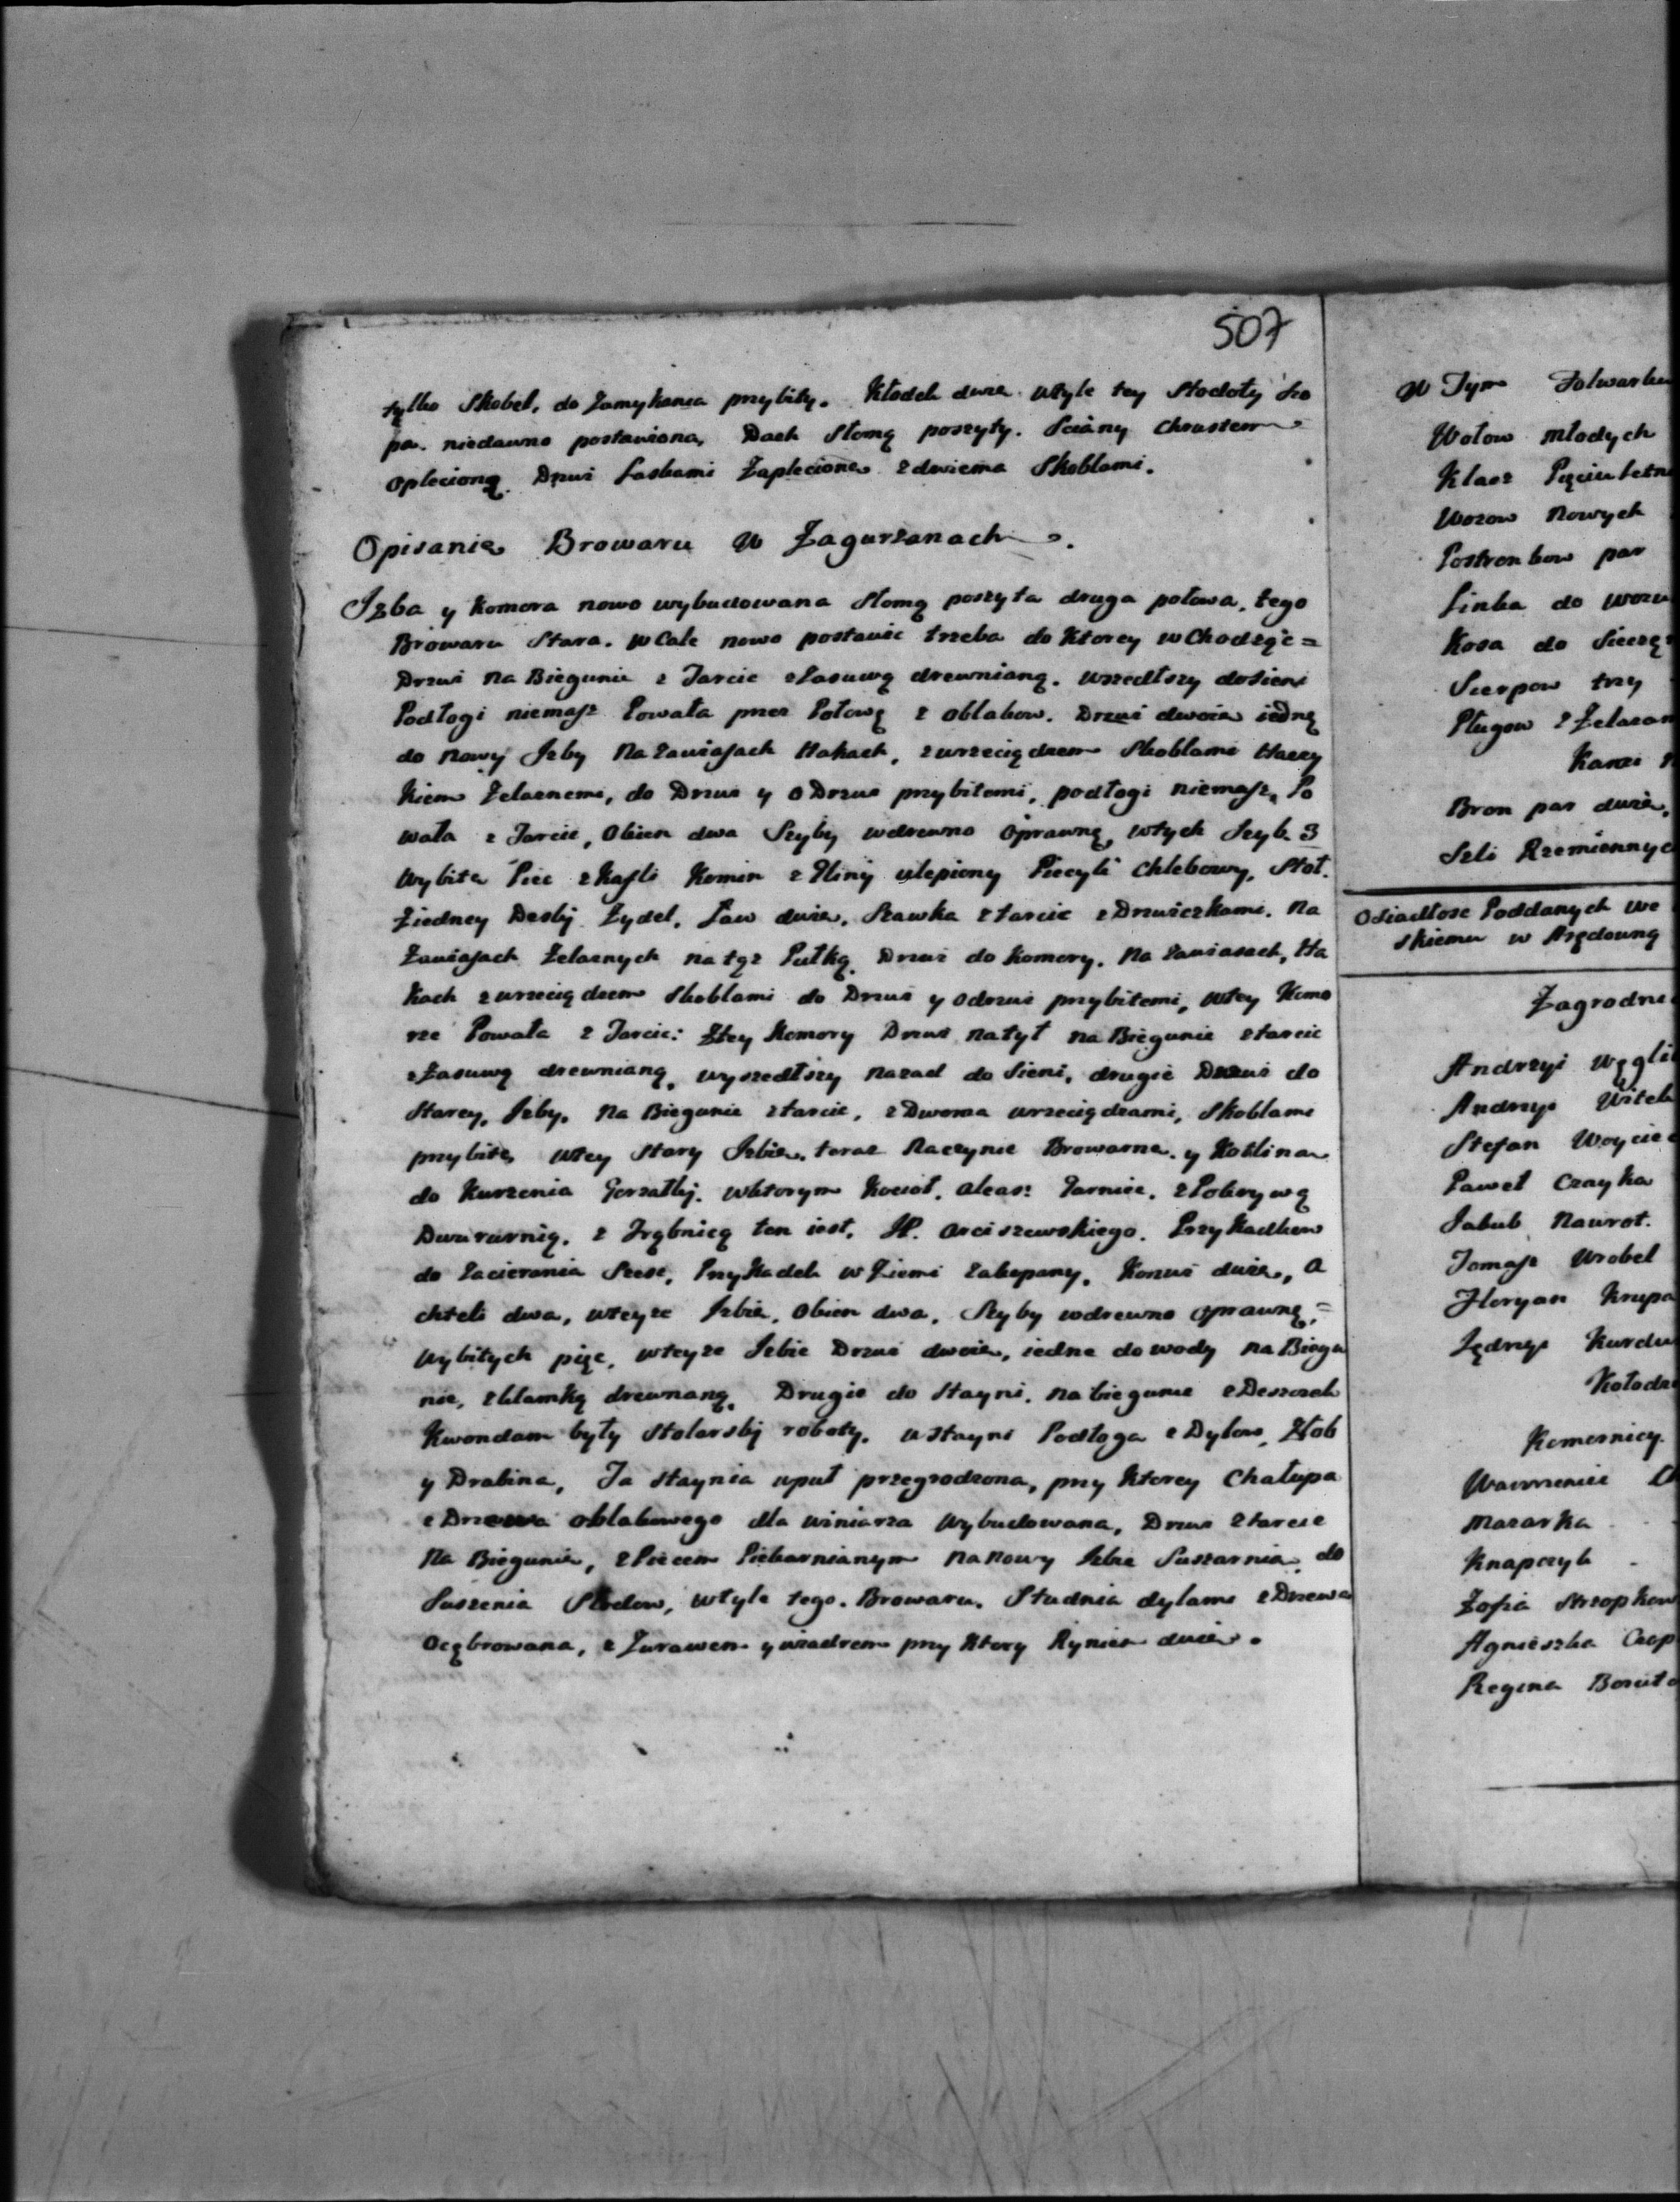 507
tylko Skobel, do Zamykania przybity. Kłodek dwie. wtyle tey Stodoły Szo
pa. niedawno postawiona, Dach Słomą poszyty. Sciány Chrustem
oplecioną. Drzwi Laskami Zaplecione z dwiema Skoblami.
Opisanie Browaru w Zagurzanach.
Izba y Komora nowo wybudowana Słomą poszyta druga połowa, tego
Browaru Stara. w Cale nowo postawić trzeba do Ktorey wChodząc =
Drzwi na Biegunie z Tarcic zZasuwą drewnianą. wszedłszy dosieni
Podłogi niemasz Powała przez Połowę z obłakow. Drzwi dwoie iedne
do nowy Izby na Zawiasach Hakach, zwrzeciądzem Skoblami Haczy
kiem Zelaznemi, do Drzwi y oDrzwi przybitemi, podłogi niemasz, Po
wała z Tarcic, Okien dwa Szyby wdrewno oprawne, wtych Szyb 3
wybite Piec zKafli Komin z Gliny ulepiony Piecyk Chlebowy, Stoł.
Ziedney Deski Zydel. Ław dwie, Szawka z tarcic z Drzwiczkami. na
Zawiasach Zelaznych na tęż Pułką. Drzwi do Komory. Na Zawiasach, Ha
kach z wrzeciądzem Skoblami do Drzwi y odrzwi przybitemi, wtey Komo
rze Powała z Tarcic: Ztey Komory Drzwi natył na Biegunie z tarcic
zZasuwą drewnianą, wyszedłszy nazad do Sieni, drugie Drzwi do
Starey, Izby, na Biegunie z tarcic, z Dwoma wrzeciądzami, Skoblami
przybite, wtey Stary Izbie, teraz Naczynie Browarne. y Kotlina
do Kurzenia Gorzałky. wktorym Kocioł. Garniec. z Pokrywą
Dwururnią. z Trąbnicą ten iest. JP. Arciszewskiego. Przykadkow
do Zacierania Szesc, Przykadek w Ziemi Zakopany. Konwi dwie, A
chteli dwa, wteyze Izbie, Okien dwa, Szyby wdrewno oprawne, =
wybitych pięc, wteyze Izbie Drzwi dwoie, iedne do wody na Biegu
nie, z klamką drewnaną. Drugie do Stayni. na biegunie z Deszczek
Kwondam były Stolarsky roboty. wstayni Podłoga z Dylow, Złob
y Drabina, Ta Staynia wpuł przegrodzona, przy Ktorey Chałupa
z Drzewa obłakowego dla winiarza Wybudowana, Drzwi z tarcic
Na Biegunie, z Piecem Piekarnianym na nowy Izbie Suszarnia do
Suszenia Słodow, wtyle tego Browaru. Studnia dylami z Drzewa
Ocębrowana, z Zurawem y wiadrem przy Ktory Rynien dwie.
W Tym Folwarku
Wołow młodych
Klacz Pięciu letn
Wozow Nowych
Postronkow par
Linka do wozu
Kosa do Sieczę
Sierpow trzy
Pługow z Zelazam
Bron par dwie,
Szli Rzemiennyc
Osiadłosc Poddanych we
skiemu w Arędowną
Zagrodni
Andrzyi Węgli
Andrzyi Witek
Stefan Woycie
Paweł Czayka
Jakub Nawrot.
Tomasz Wrobel
Floryan Krupa
Jędrzyi Kurdu
Kołodz
Komornicy
Wawrzeniec
Mazarka
Knapczyk
Zofia Strzopkow
Agnieszka Czop
Regina Boruto